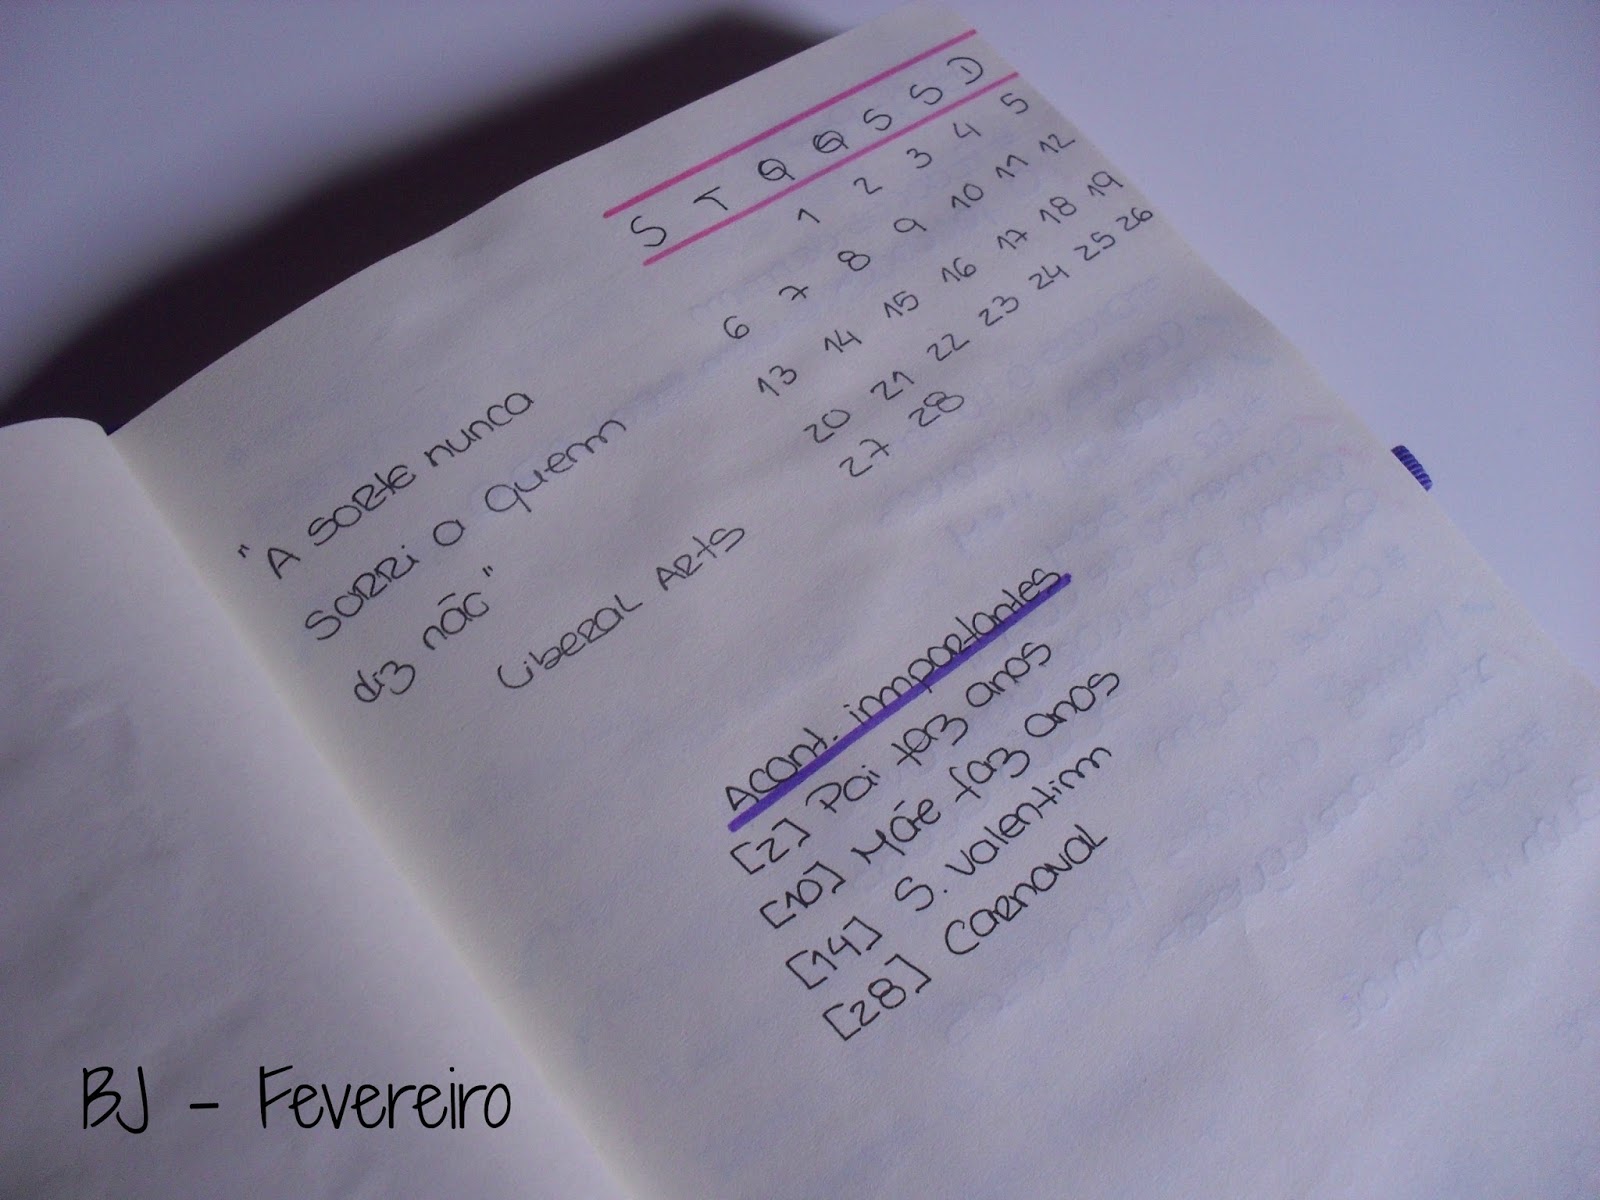 S T Q Q S S D
1 2 3 4 5
6 7 8 9 10 11 12
13 14 15 16 17 18 19
20 21 22 23 24 25 26
27 28
"A sorte nunca
sorri a quem
diz não"
Liberal Arts
Acont. importantes
[2] Pai faz anos
[10] Mãe faz anos
[14] S. Valentim
[28] Carnaval
BJ - Fevereiro